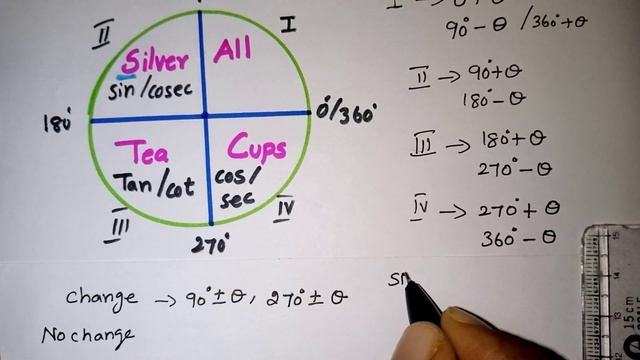 II
I
Silver
All
sin/cosec
180°
0°/360°
Tea
Cups
Tan/cot
cos/
sec
III
IV
270°
90° - θ /360° + θ
II → 90° + θ
180° - θ
III → 180° + θ
270° - θ
IV → 270° + θ
360° - θ
Change → 90° ± θ, 270° ± θ
No change
15
14
13
12
15cm